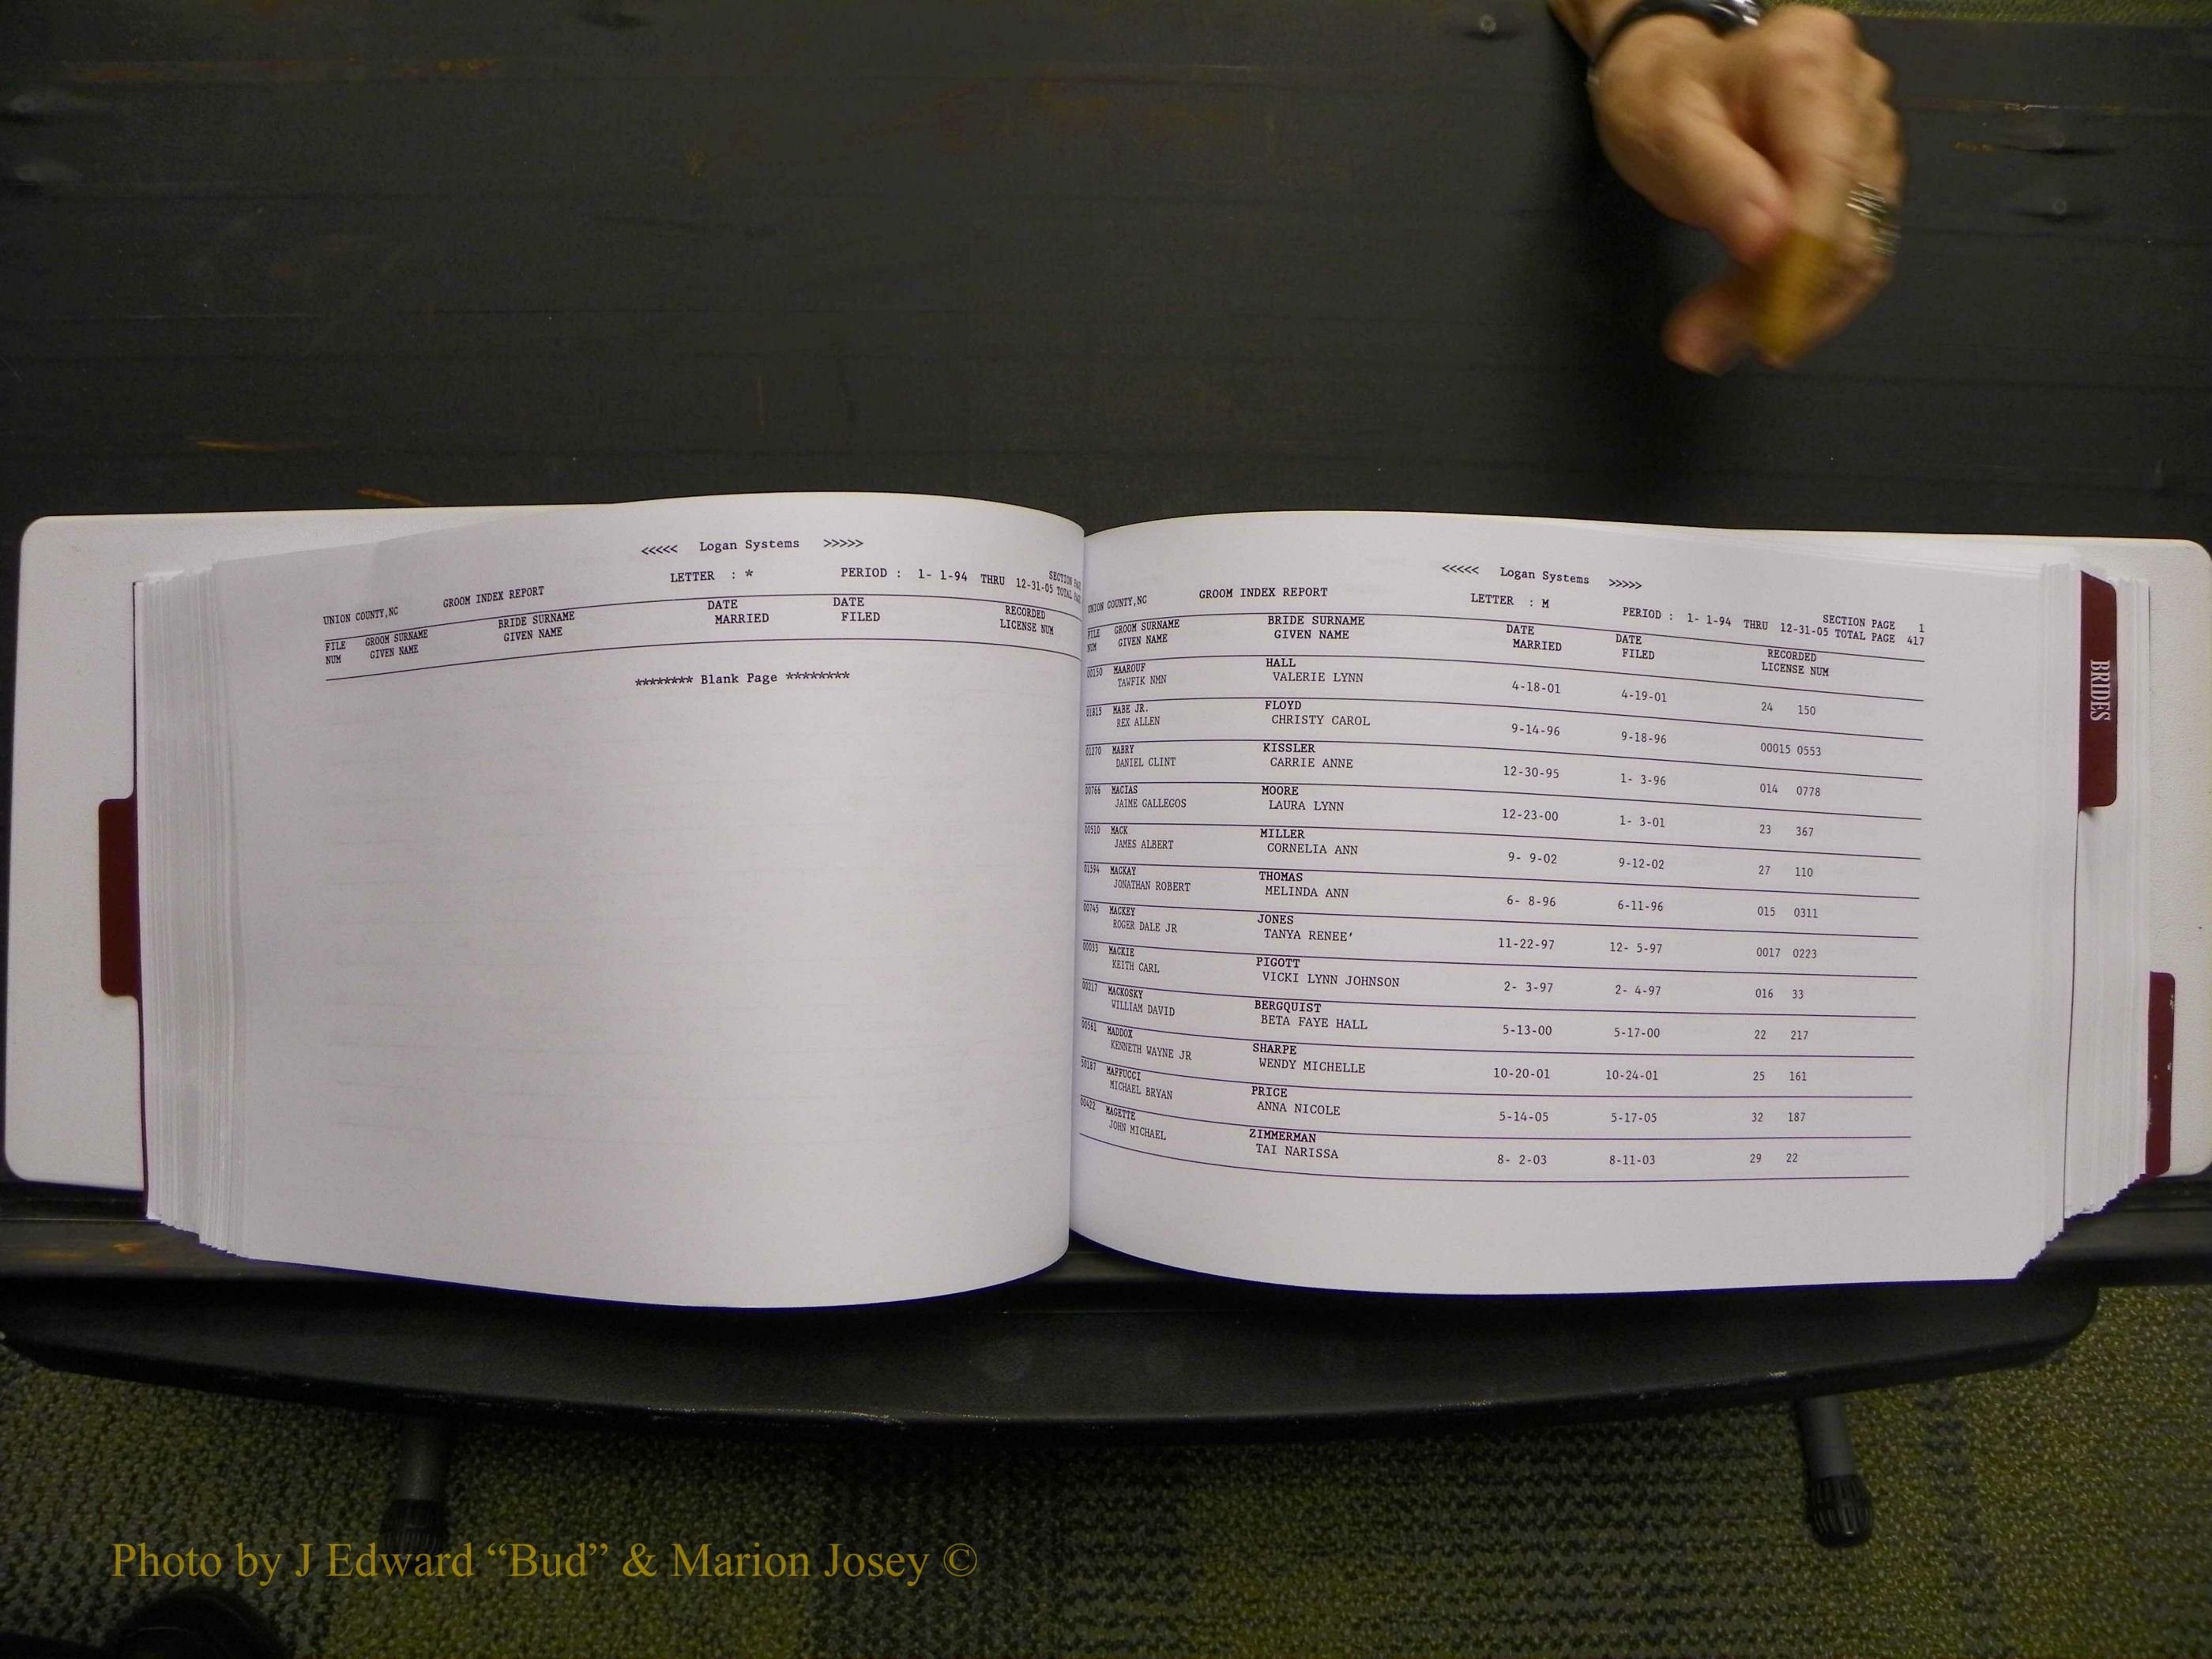 <<<<< Logan Systems >>>>>
LETTER : * PERIOD : 1- 1-94 THRU 12-31-05 TOTAL
SECTION
UNION COUNTY,NC GROOM INDEX REPORT
FILE GROOM SURNAME BRIDE SURNAME DATE DATE RECORDED
NUM GIVEN NAME GIVEN NAME MARRIED FILED LICENSE NUM
******** Blank Page ********
<<<<< Logan Systems >>>>>
UNION COUNTY,NC GROOM INDEX REPORT LETTER : M PERIOD : 1- 1-94 THRU 12-31-05 TOTAL PAGE 417
SECTION PAGE 1
FILE GROOM SURNAME BRIDE SURNAME DATE DATE RECORDED
NUM GIVEN NAME GIVEN NAME MARRIED FILED LICENSE NUM
00150 MAAROUF HALL
TAWFIK NMN VALERIE LYNN 4-18-01 4-19-01 24 150
01815 MABE JR. FLOYD
REX ALLEN CHRISTY CAROL 9-14-96 9-18-96 00015 0553
01270 MABRY KISSLER
DANIEL CLINT CARRIE ANNE 12-30-95 1- 3-96 014 0778
00766 MACIAS MOORE
JAIME GALLEGOS LAURA LYNN 12-23-00 1- 3-01 23 367
00510 MACK MILLER
JAMES ALBERT CORNELIA ANN 9- 9-02 9-12-02 27 110
01594 MACKAY THOMAS
JONATHAN ROBERT MELINDA ANN 6- 8-96 6-11-96 015 0311
00745 MACKEY JONES
ROGER DALE JR TANYA RENEE' 11-22-97 12- 5-97 0017 0223
00033 MACKIE PIGOTT
KEITH CARL VICKI LYNN JOHNSON 2- 3-97 2- 4-97 016 33
00217 MACKOSKY BERGQUIST
WILLIAM DAVID BETA FAYE HALL 5-13-00 5-17-00 22 217
00561 MADDOX SHARPE
KENNETH WAYNE JR WENDY MICHELLE 10-20-01 10-24-01 25 161
50187 MAFFUCCI PRICE
MICHAEL BRYAN ANNA NICOLE 5-14-05 5-17-05 32 187
00422 MAGETTE ZIMMERMAN
JOHN MICHAEL TAI NARISSA 8- 2-03 8-11-03 29 22
BRIDES
Photo by J Edward “Bud” & Marion Josey ©